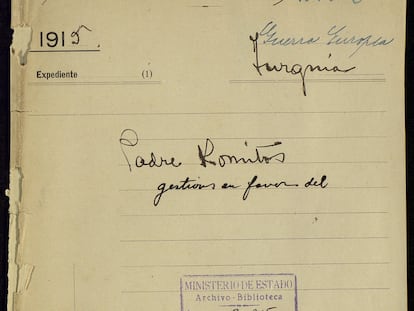 1915.
Guerra Europea
Expediente (1)
Turquia
Padre Komitos
gestiones en favor del
MINISTERIO DE ESTADO
Archivo-Biblioteca